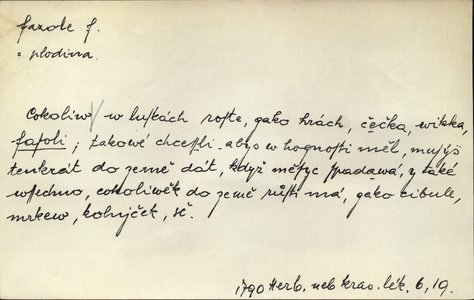 fazole f.
= plodina.
Cokoliw w luskách roste, gako hrách, čečka, wikka,
fasoli; takowé chceßli abys w hognosti měl, musýš
tenkrát do země dát, když měsyc spadawá, y také
wssechno, cokoliwěk do země růsti má, gako cibule,
mrkew, kolnjček, ꝛč.
1790 Herb. neb kraw. lék. 6, 19.